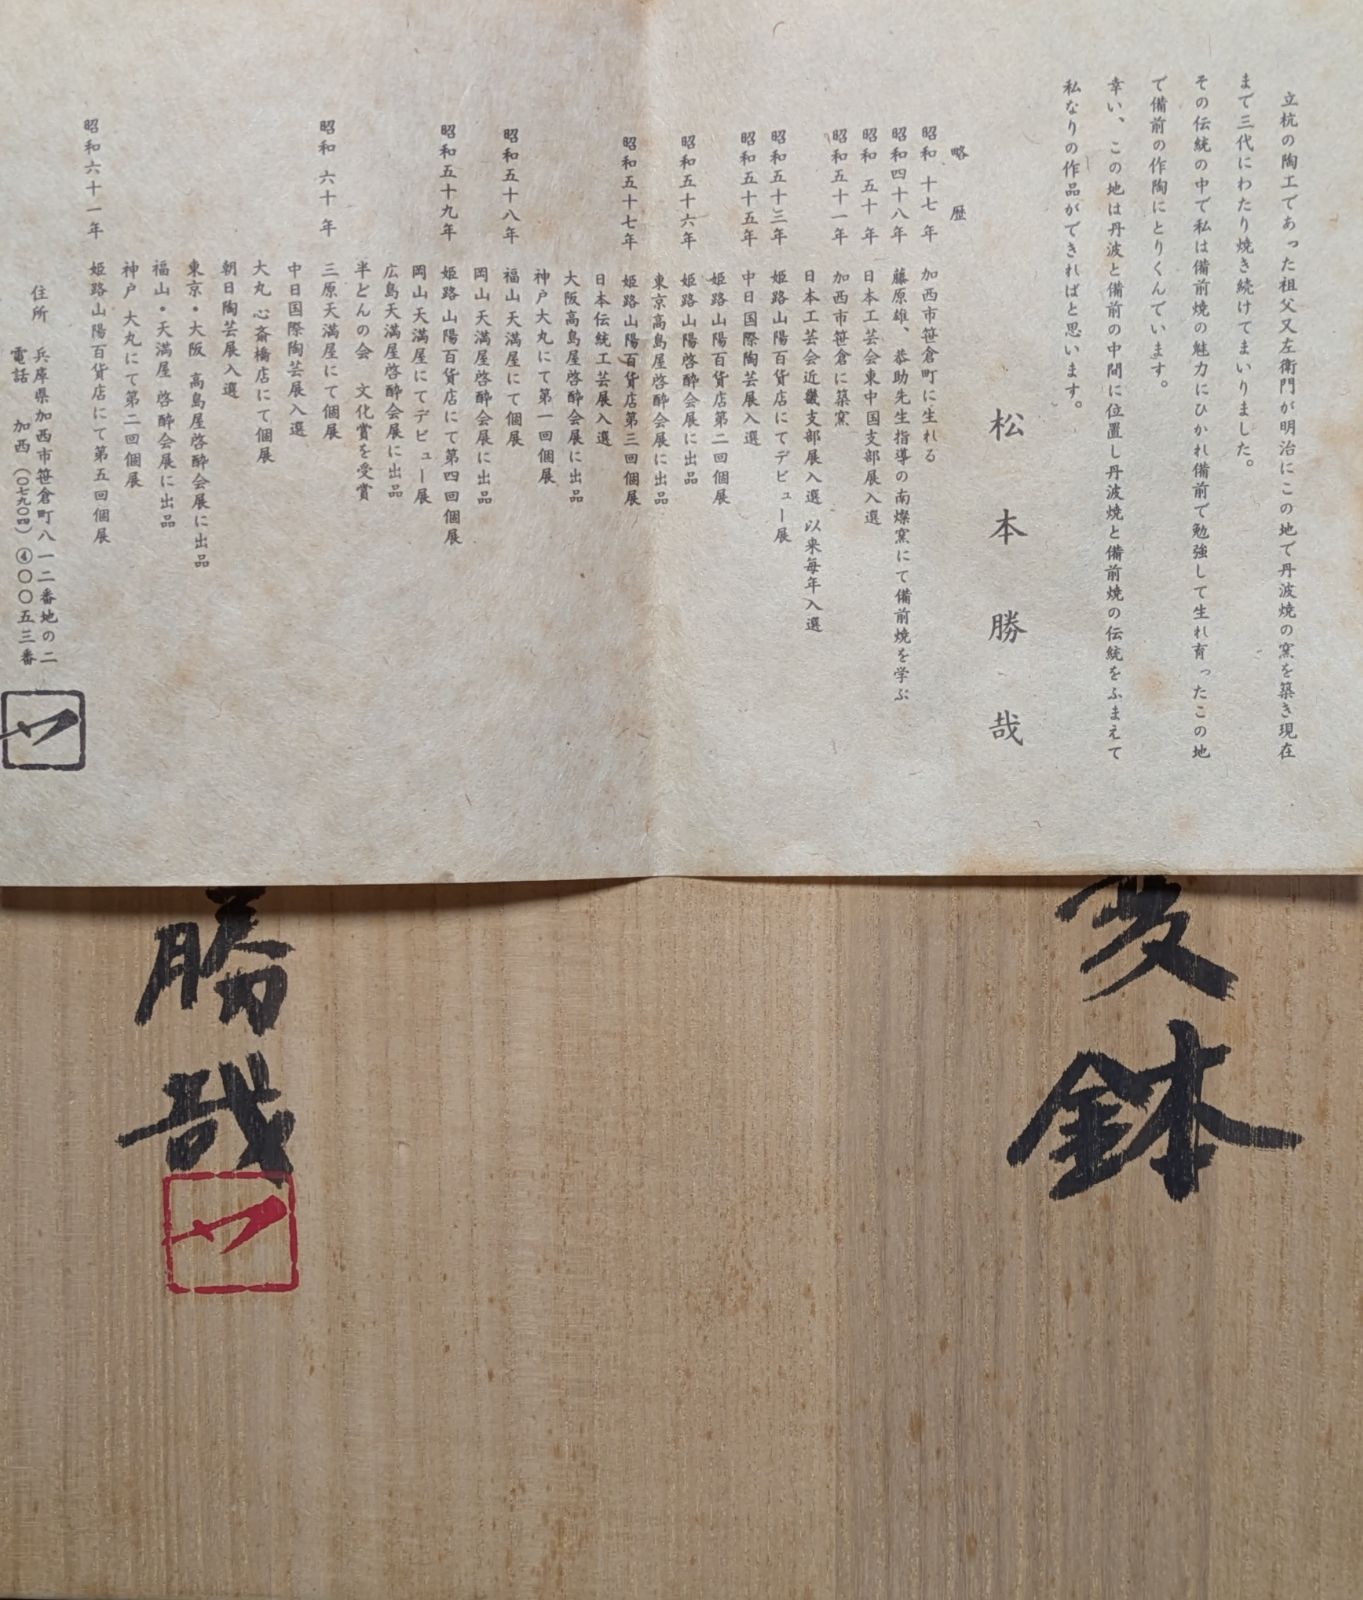 立杭の陶工であった祖父又左衛門が明治にこの地で丹波焼の窯を築き現在
まで三代にわたり焼き続けてまいりました。
その伝統の中で私は備前焼の魅力にひかれ備前で勉強して生れ育ったこの地
で備前の作陶にとりくんでいます。
幸い、この地は丹波と備前の中間に位置し丹波焼と備前焼の伝統をふまえて
私なりの作品ができればと思います。
松本勝哉
略歴
昭和十七年 加西市笹倉町に生れる
昭和四十八年 藤原雄、恭助先生指導の南燦窯にて備前焼を学ぶ
昭和五十年 日本工芸会東中国支部展入選
昭和五十一年 加西市笹倉に築窯
日本工芸会近畿支部展入選 以来毎年入選
昭和五十三年 姫路山陽百貨店にてデビュー展
昭和五十五年 中日国際陶芸展入選
姫路山陽百貨店第二回個展
昭和五十六年 姫路山陽啓酔会展に出品
東京高島屋啓酔会展に出品
昭和五十七年 姫路山陽百貨店第三回個展
日本伝統工芸展入選
大阪高島屋啓酔会展に出品
神戸大丸にて第一回個展
昭和五十八年 福山天満屋にて個展
岡山天満屋啓酔会展に出品
昭和五十九年 姫路山陽百貨店にて第四回個展
岡山天満屋にてデビュー展
広島天満屋啓酔会展に出品
半どんの会 文化賞を受賞
昭和六十年 三原天満屋にて個展
中日国際陶芸展入選
大丸心斎橋店にて個展
朝日陶芸展入選
東京・大阪 高島屋啓酔会展に出品
福山・天満屋啓酔会展に出品
神戸大丸にて第二回個展
昭和六十一年 姫路山陽百貨店にて第五回個展
住所 兵庫県加西市笹倉町八一二番地の二
電話 加西(〇七九〇四)④〇〇五三番
変鉢
勝哉